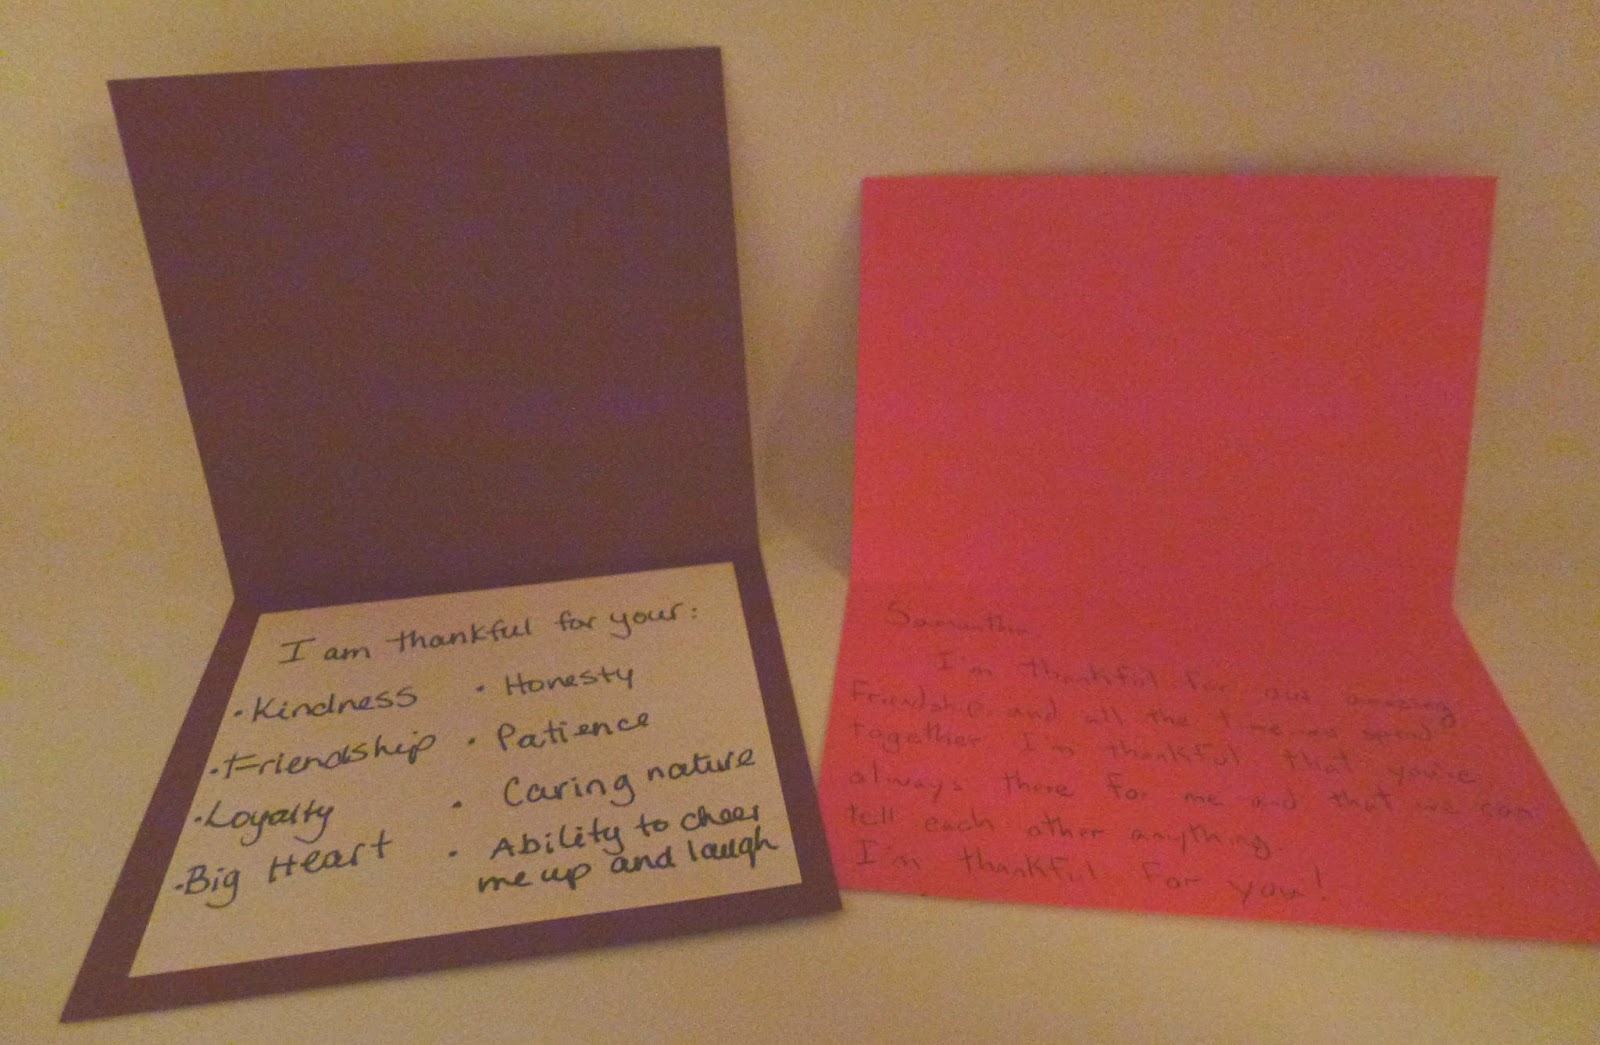 I am thankful for your:
• Kindness
• Friendship
• Loyalty
• Big Heart
• Honesty
• Patience
• Caring nature
• Ability to cheer
me up and laugh
Samantha,
I'm thankful for our amazing
Friendship and all the time we spend
together. I'm thankful that you're
always there for me and that we can
tell each other anything.
I'm thankful for you!